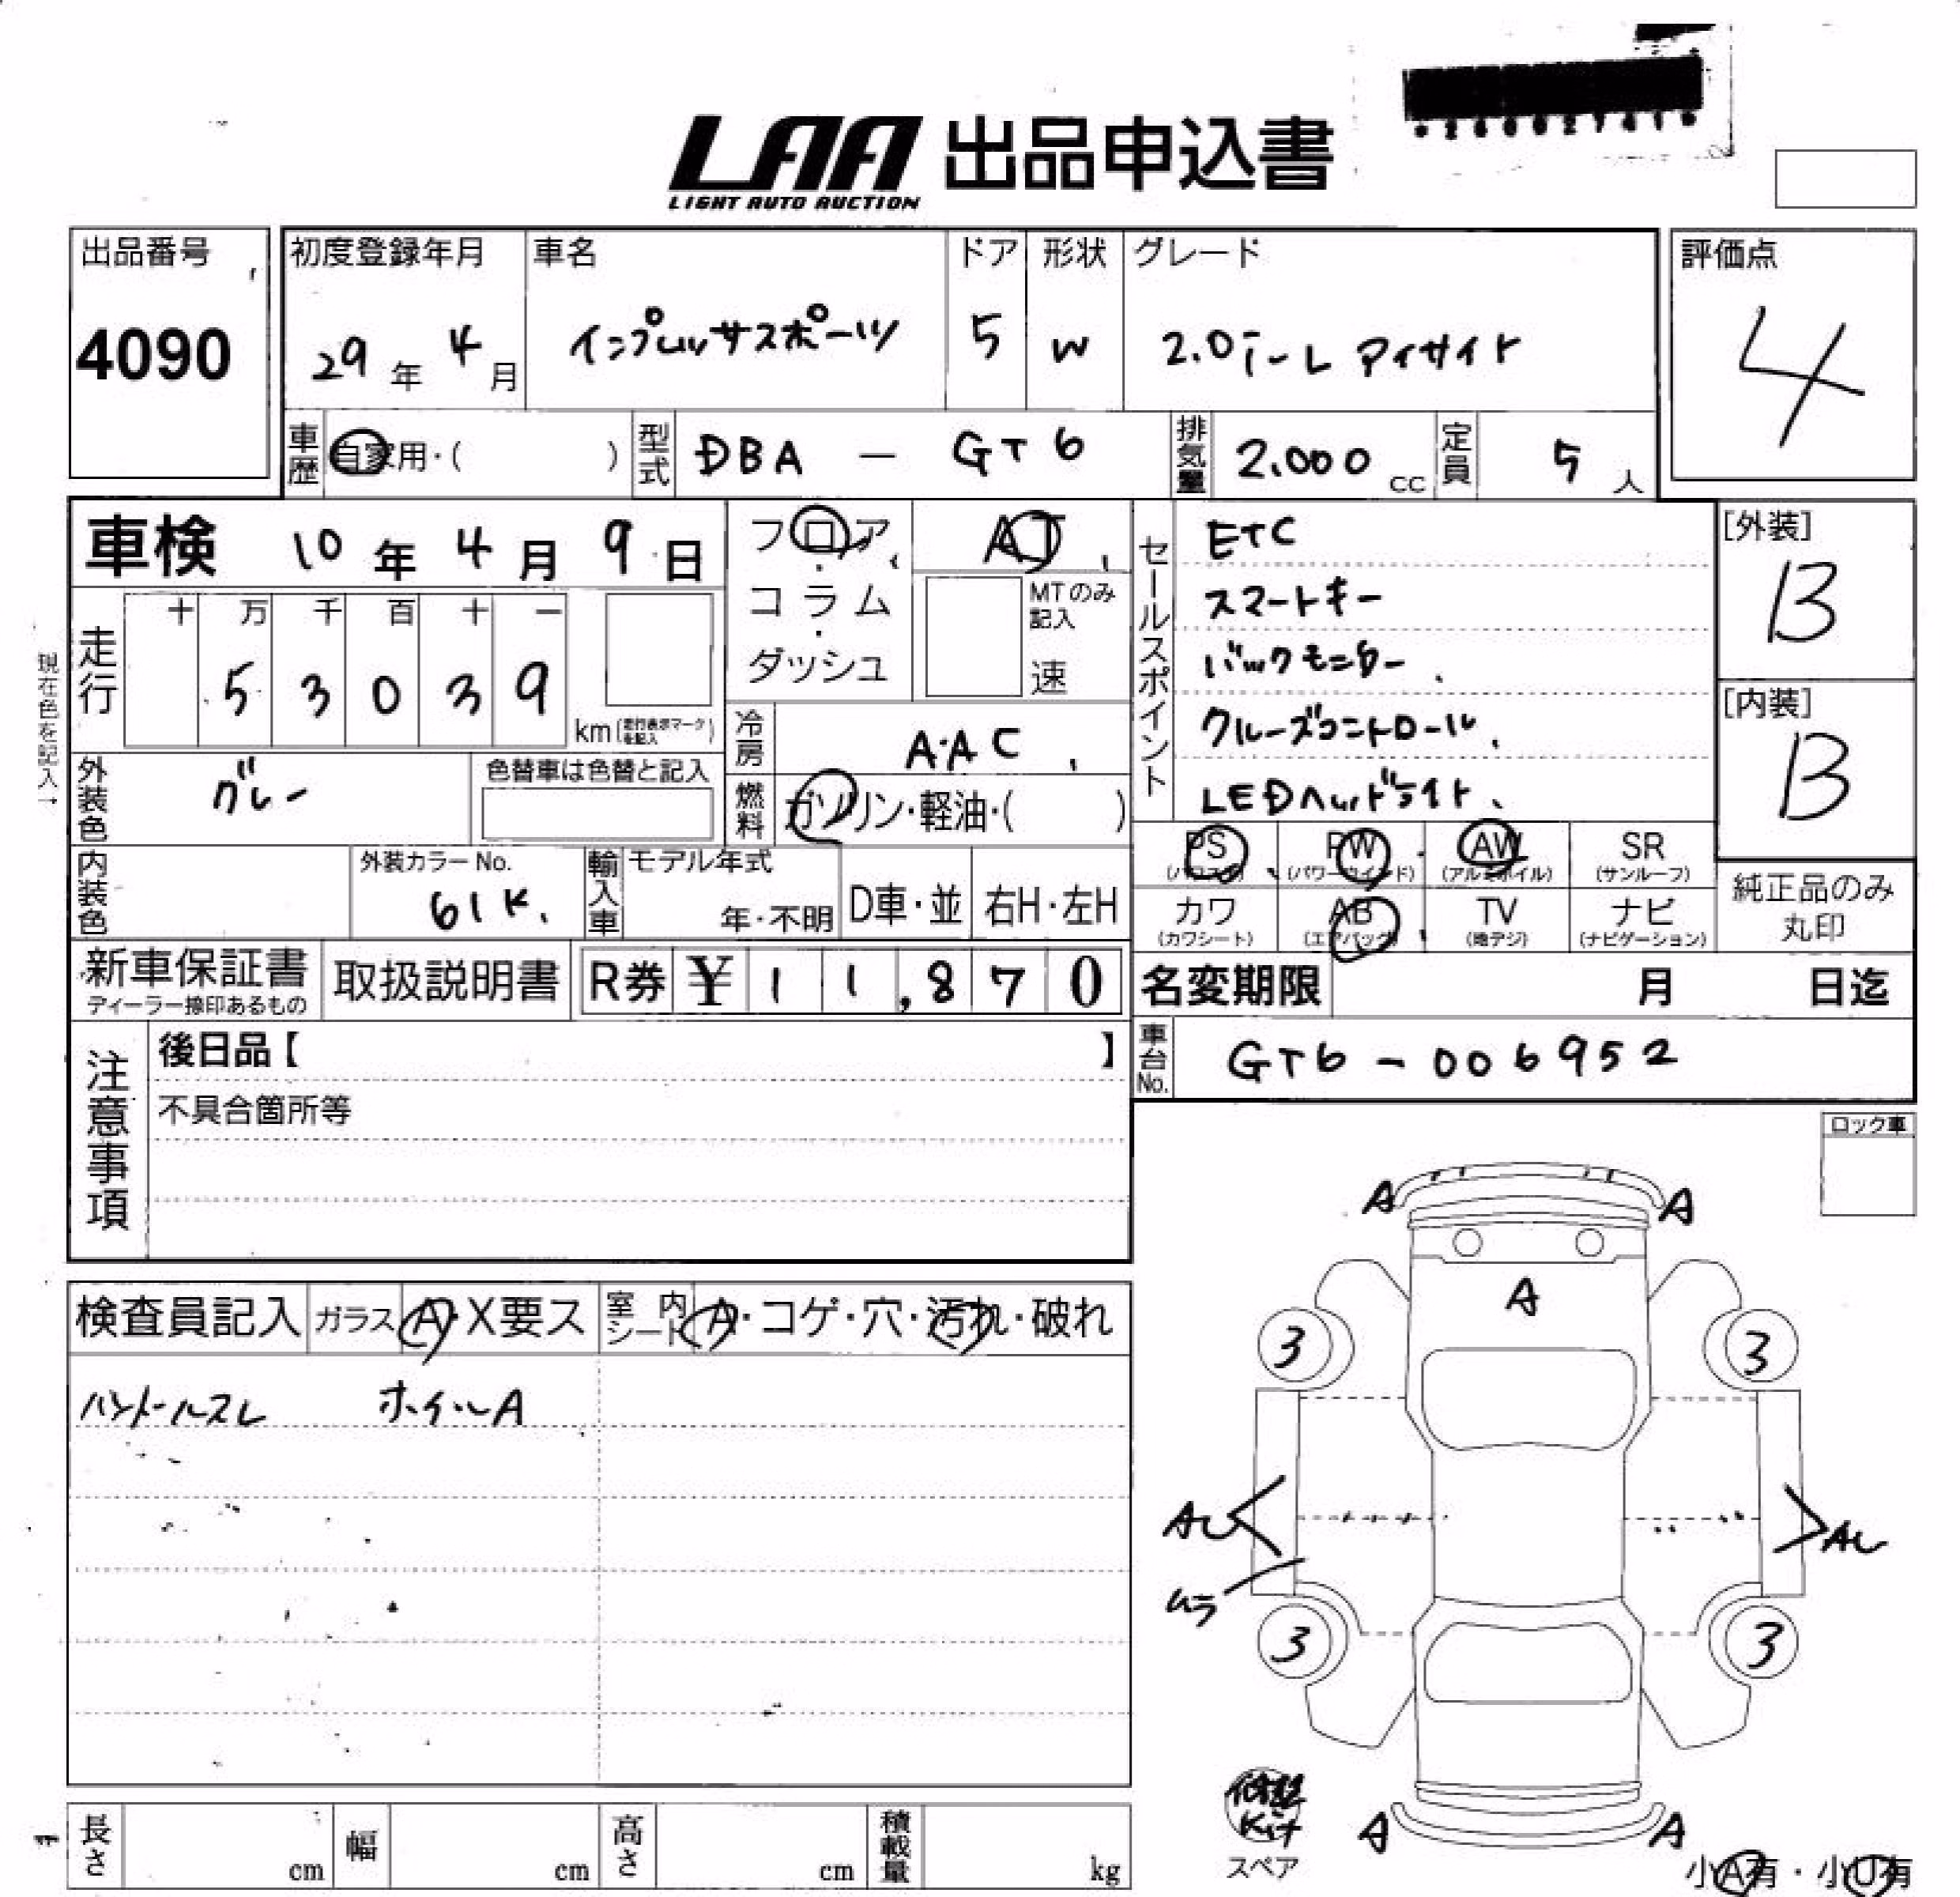 LAA 出品申込書
LIGHT AUTO AUCTION
出品番号
4090
初度登録年月
29年 4月
車名
インプレッサスポーツ
ドア
5
形状
W
グレード
2.0i-L アイサイト
評価点
4
車歴 自家用・( )
型式 DBA - GT6
排気量 2.000 cc
定員 5 人
車検 10年 4月 9日
フロア・コラム・ダッシュ
AT
MTのみ記入
速
走行
十 万 千 百 十 一
5 3 0 3 9
km
走行表示マークを記入
現在色を記入→
冷房 A.AC
燃料 ガソリン・軽油・( )
外装色 グレー
色替車は色替と記入
内装色
外装カラーNo.
61K
輸入車
モデル年式
年・不明
D車・並
右H・左H
セールスポイント
ETC
スマートキー
バックモニター
クルーズコントロール
LEDヘッドライト
[外装]
B
[内装]
B
PS PW AW SR
(パワステ) (パワーウインド) (アルミホイル) (サンルーフ)
カワ AB TV ナビ
(カワシート) (エアバッグ) (地デジ) (ナビゲーション)
純正品のみ丸印
新車保証書
ディーラー捺印あるもの
取扱説明書
R券 ¥ 11,870
名変期限 月 日迄
車台No. GT6-006952
注意事項
後日品【 】
不具合箇所等
ロック車
検査員記入
ガラス A・X要ス
室内シート A・コゲ・穴・汚れ・破れ
ハンドルスレ ホイールA
A A
A
3 3
AU AU
ムラ
3 3
修理Kit
スペア
A A
小A有・小U有
長さ cm
幅 cm
高さ cm
積載量 kg